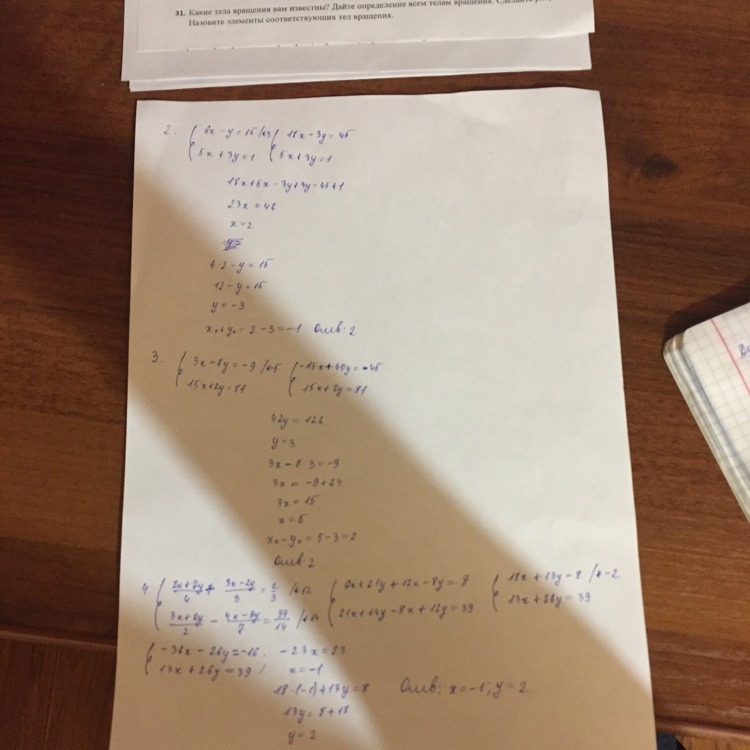 31. Какие тела вращения вам известны? Дайте определение всем телам вращения. Сделайте
Назовите элементы соответствующих тел вращения.
2. { 6x - y = 15 /·3 { 18x - 3y = 45
5x + 3y = 1 5x + 3y = 1
18x + 5x - 3y + 3y = 45 + 1
23x = 46
x = 2
6·2 - y = 15
12 - y = 15
y = -3
x₀ + y₀ = 2 - 3 = -1 Отв: 2
3. { 3x - 8y = -9 /·-5 { -15x + 40y = 45
15x + 2y = 81 15x + 2y = 81
42y = 126
y = 3
3x - 8·3 = -9
3x = -9 + 24
3x = 15
x = 5
x₀ - y₀ = 5 - 3 = 2
Отв: 2
4. { (2x+7y)/4 + (3x-2y)/3 = 2/3 /·12 { 6x + 21y + 12x - 8y = 8 { 18x + 13y = 8 /·-2
(3x+2y)/2 - (4x-3y)/7 = 39/14 /·14 21x + 14y - 8x + 12y = 39 13x + 26y = 39
{ -36x - 26y = -16 -23x = 23
13x + 26y = 39 x = -1
18·(-1) + 13y = 8 Отв: x = -1; y = 2
13y = 8 + 18
y = 2